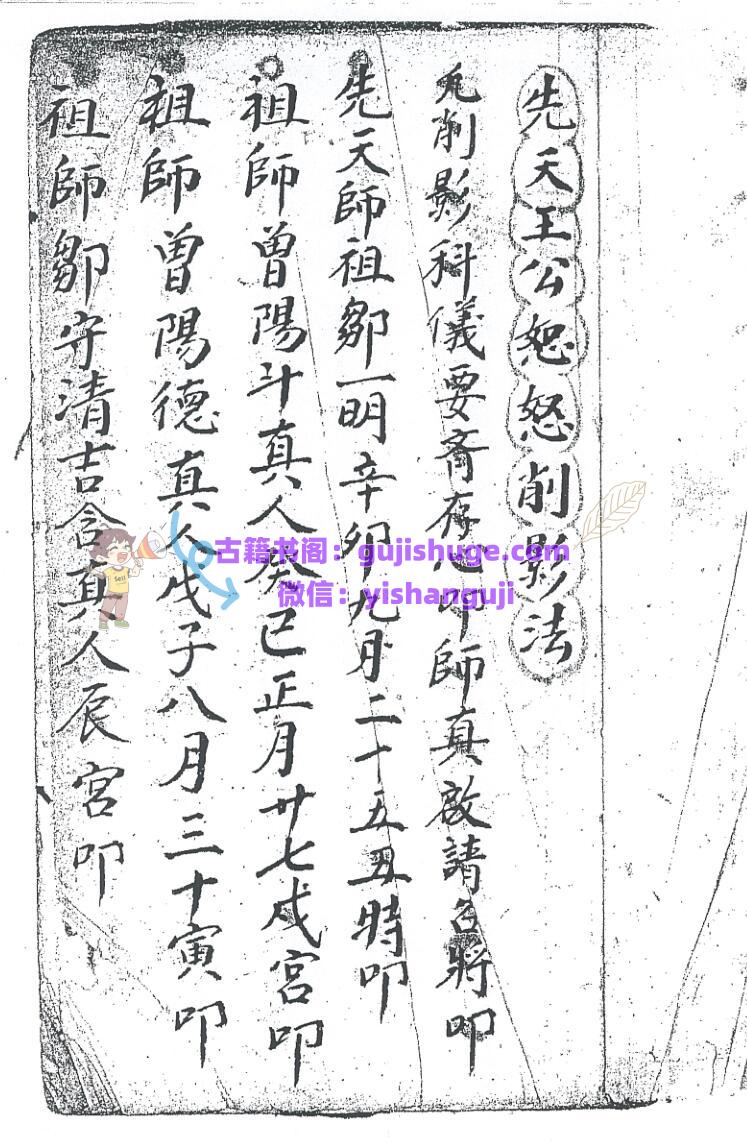 先天王公恕怒削影法
凡削影科儀要齊存心叩師真啟請召將叩
先天師祖鄒一明辛卯九月二十五丑時叩
祖師曾陽斗真人癸巳正月廿七戌宮叩
祖師曾陽德真人戊子八月三十寅叩
祖師鄒守清吉含真人辰宮叩
古籍书阁：gujishuge.com
微信：yishanguji
Sell